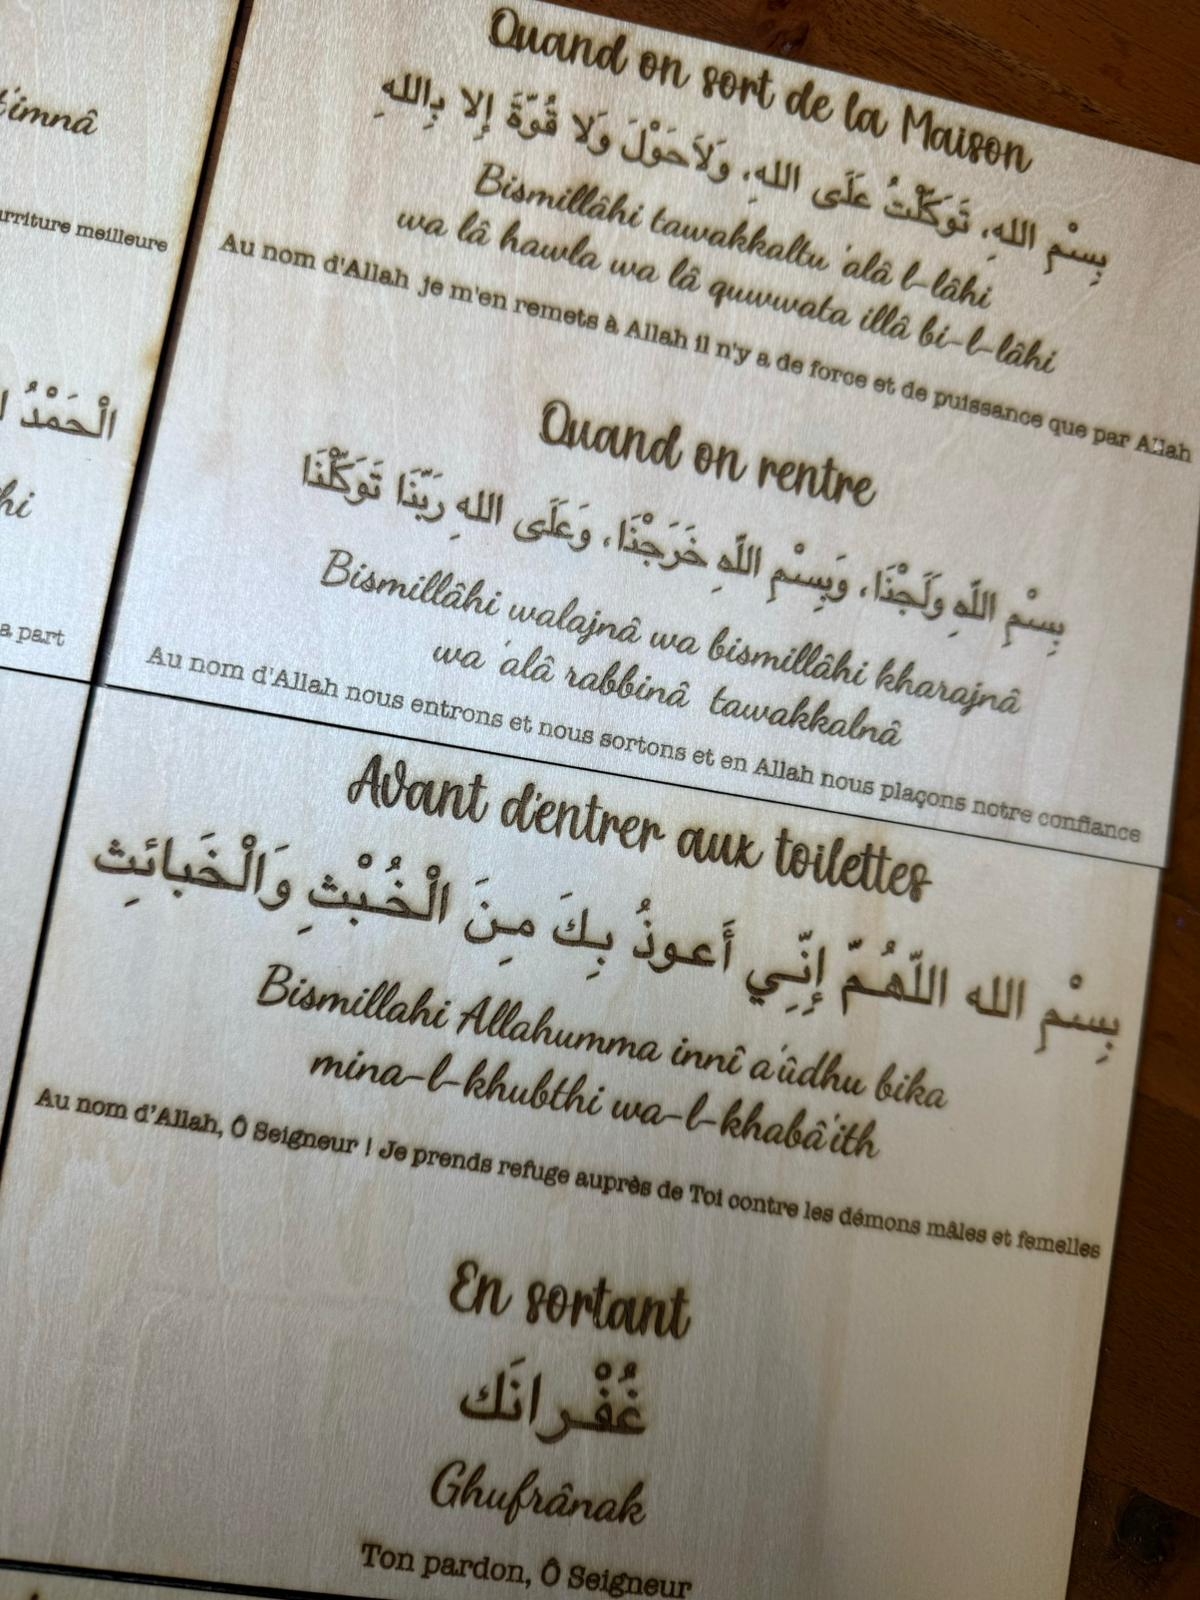 t'imnâ
urriture meilleure
الْحَمْدُ
hi
a part
Quand on sort de la Maison
بِسْمِ اللهِ، تَوَكَّلْتُ عَلَى اللهِ، وَلاَحَوْلَ وَلا قُوَّةَ إِلا بِاللهِ
Bismillâhi tawakkaltu 'alâ l-lâhi
wa lâ hawla wa lâ quwwata illâ bi-l-lâhi
Au nom d'Allah je m'en remets à Allah il n'y a de force et de puissance que par Allah
Quand on rentre
بِسْمِ اللَّهِ وَلَجْنَا، وَبِسْمِ اللَّهِ خَرَجْنَا، وَعَلَى اللهِ رَبِّنَا تَوَكَّلْنَا
Bismillâhi walajnâ wa bismillâhi kharajnâ
wa 'alâ rabbinâ tawakkalnâ
Au nom d'Allah nous entrons et nous sortons et en Allah nous plaçons notre confiance
Avant d'entrer aux toilettes
بِسْمِ الله اللّهُمَّ إِنِّي أَعوذُ بِكَ مِنَ الْخُبْثِ وَالْخَبائثِ
Bismillahi Allahumma innî a'ûdhu bika
mina-l-khubthi wa-l-khabâ'ith
Au nom d'Allah, Ô Seigneur ! Je prends refuge auprès de Toi contre les démons mâles et femelles
En sortant
غُفْرانَك
Ghufrânak
Ton pardon, Ô Seigneur